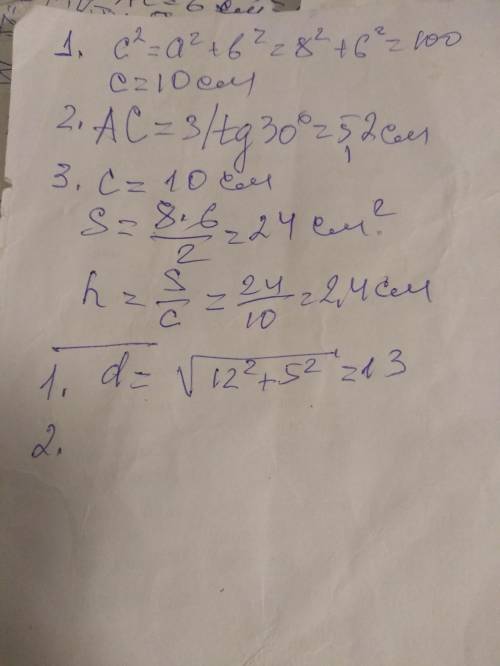 1. c²=a²+b²=8²+6²=100
c=10 см
2. AC=3/tg30°=5,2 см
3. c=10 см
S=8·6/2=24 см².
h=S/c=24/10=2,4 см
1. d=√12²+5²=13
2.